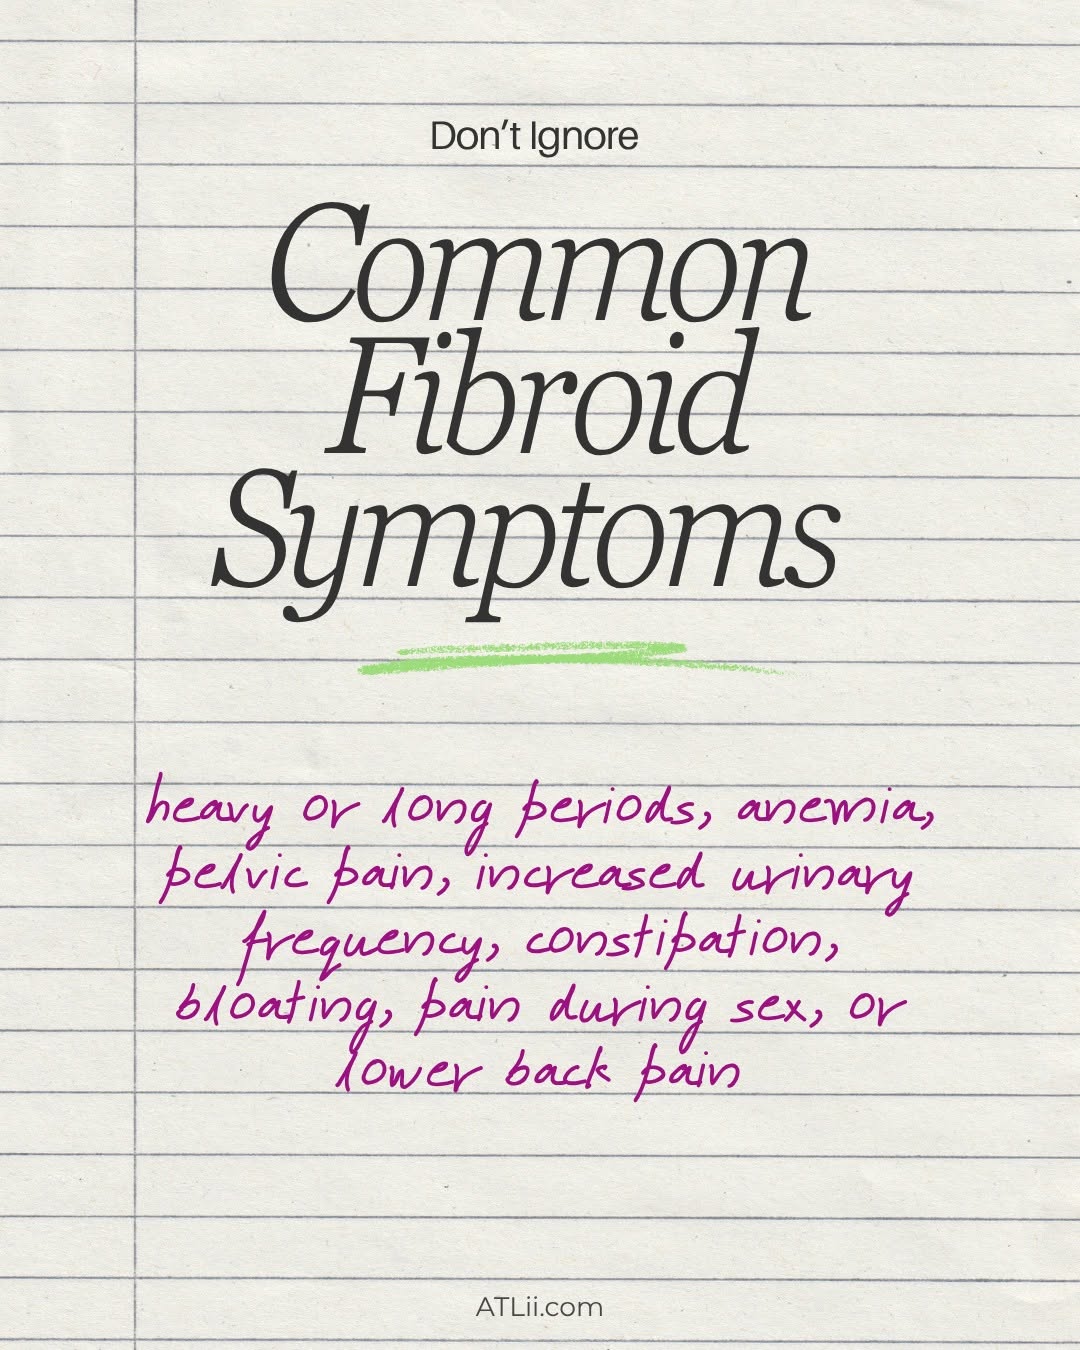 Don't Ignore
Common
Fibroid
Symptoms
heavy or long periods, anemia,
pelvic pain, increased urinary
frequency, constipation,
bloating, pain during sex, or
lower back pain
ATLii.com